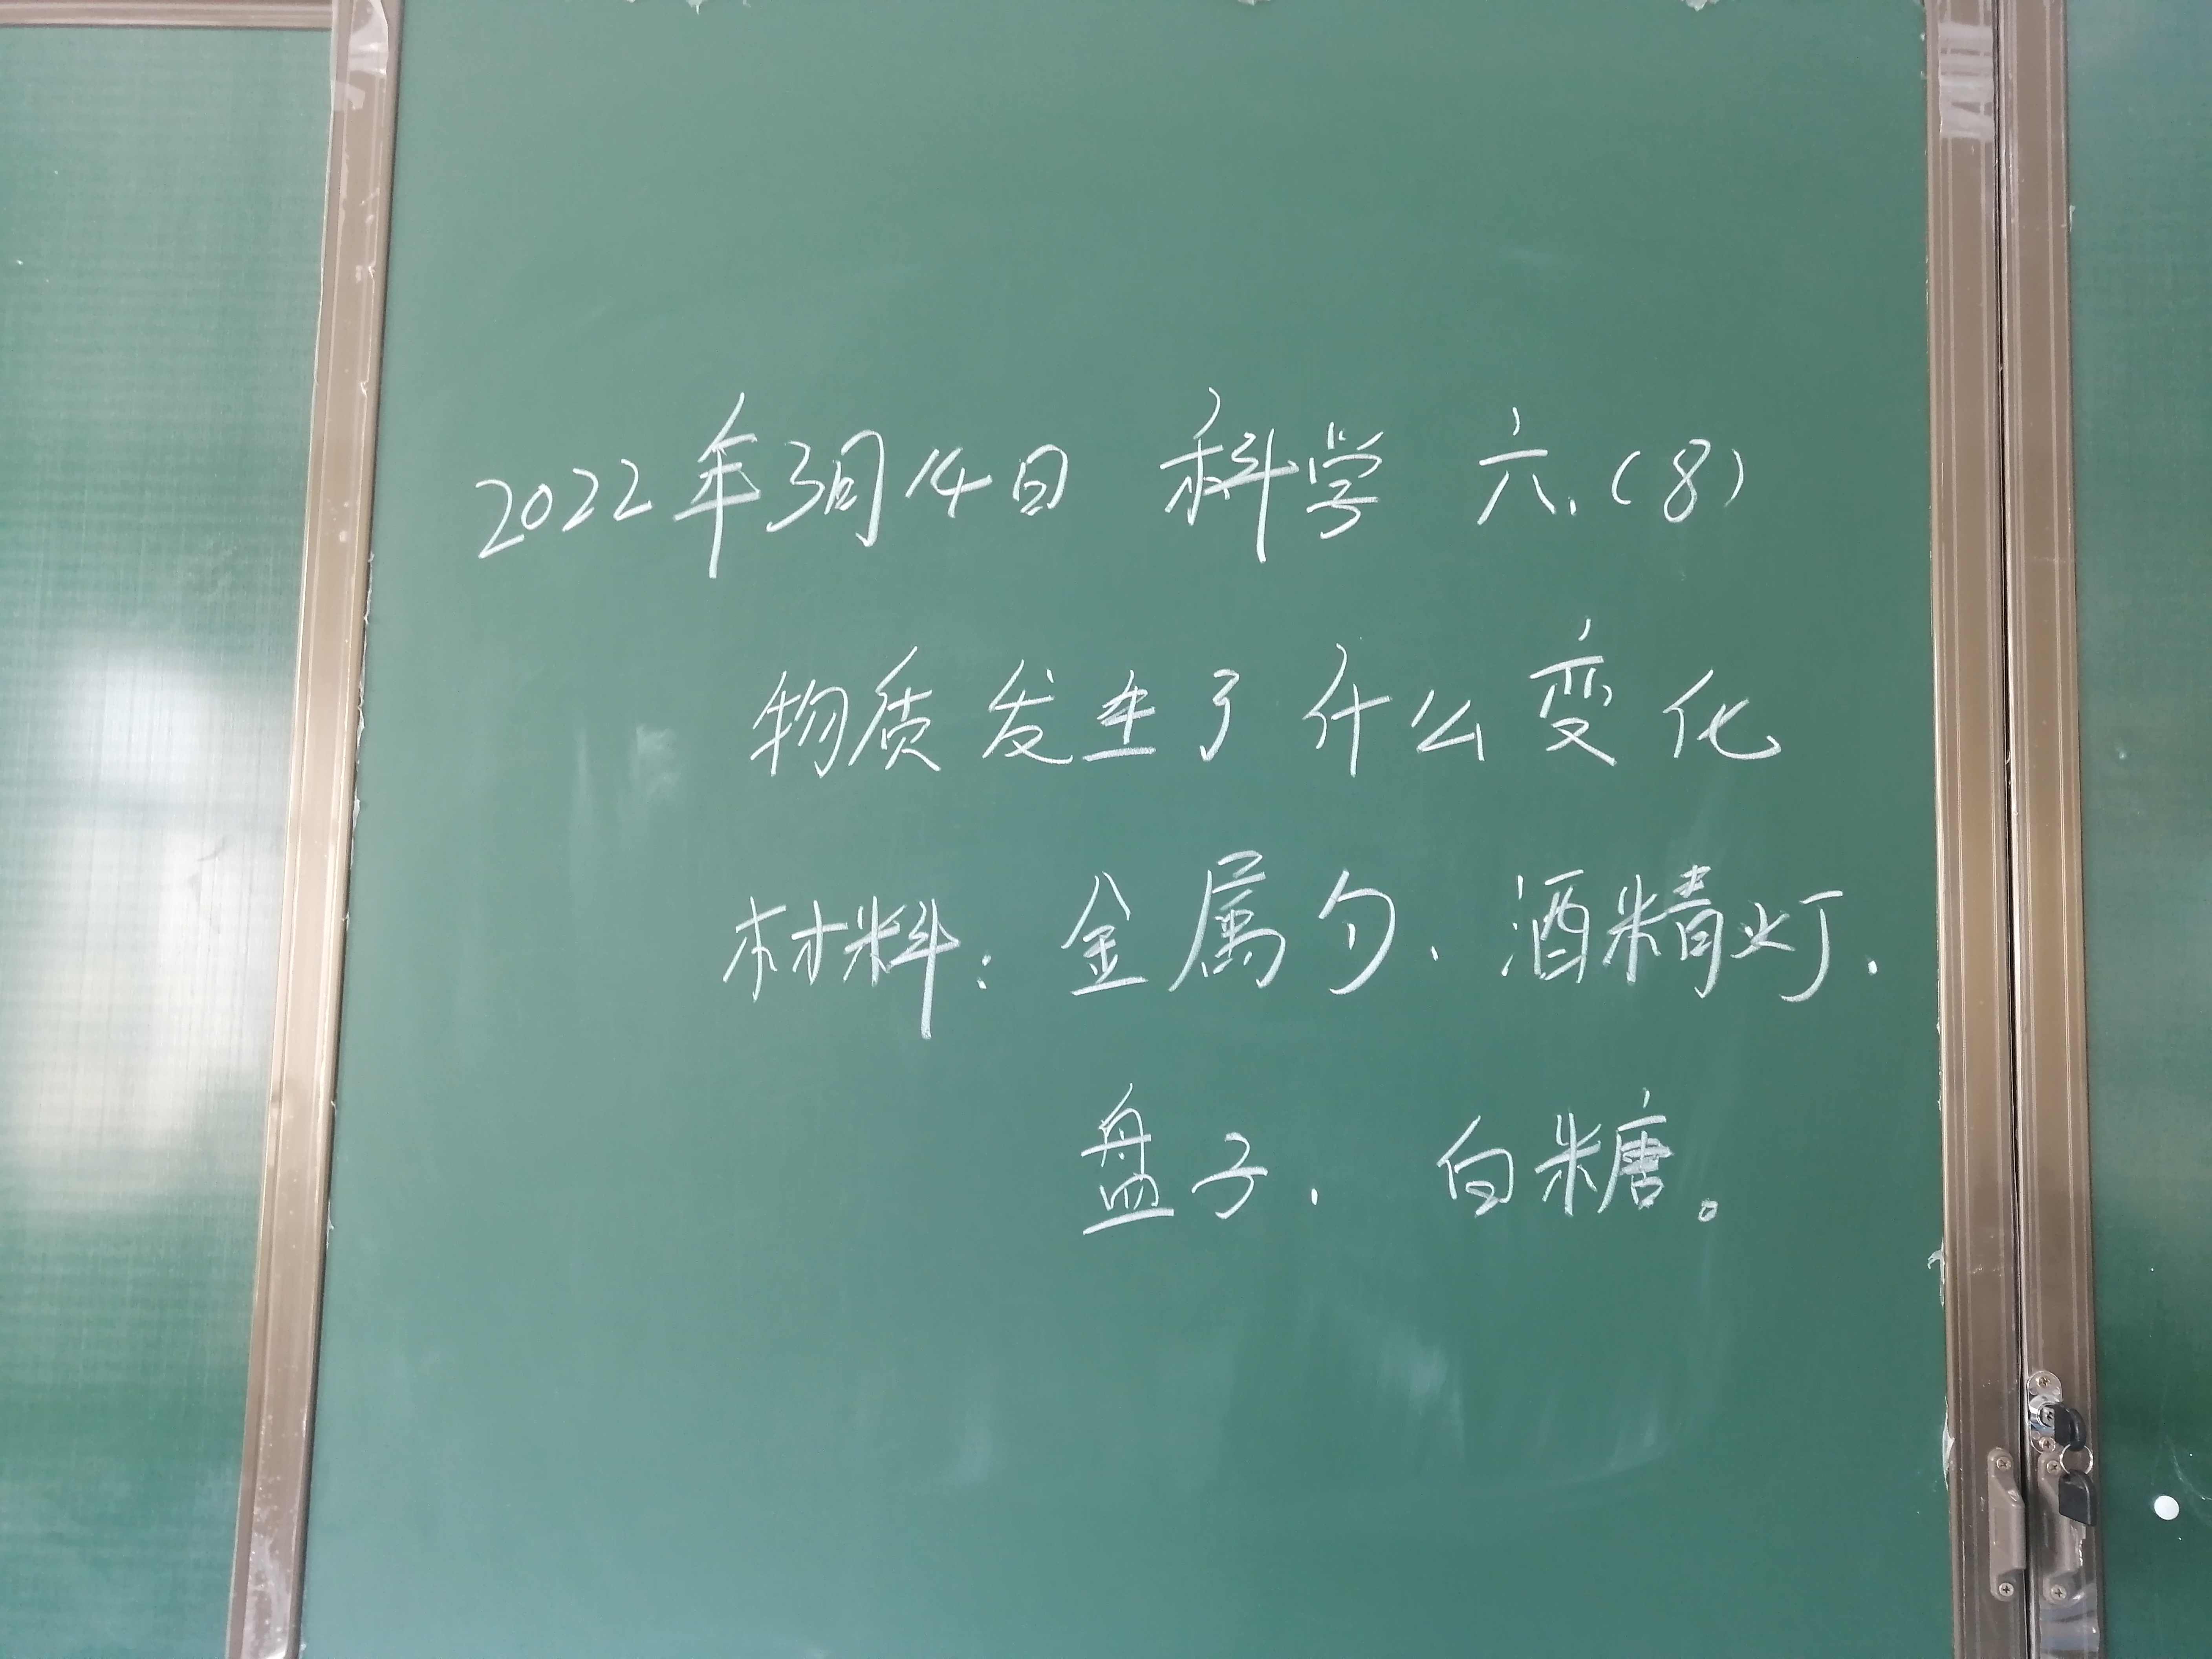 2022年3月14日 科学 六.(8)
物质发生了什么变化
材料:金属勺、酒精灯、
盘子、白糖。